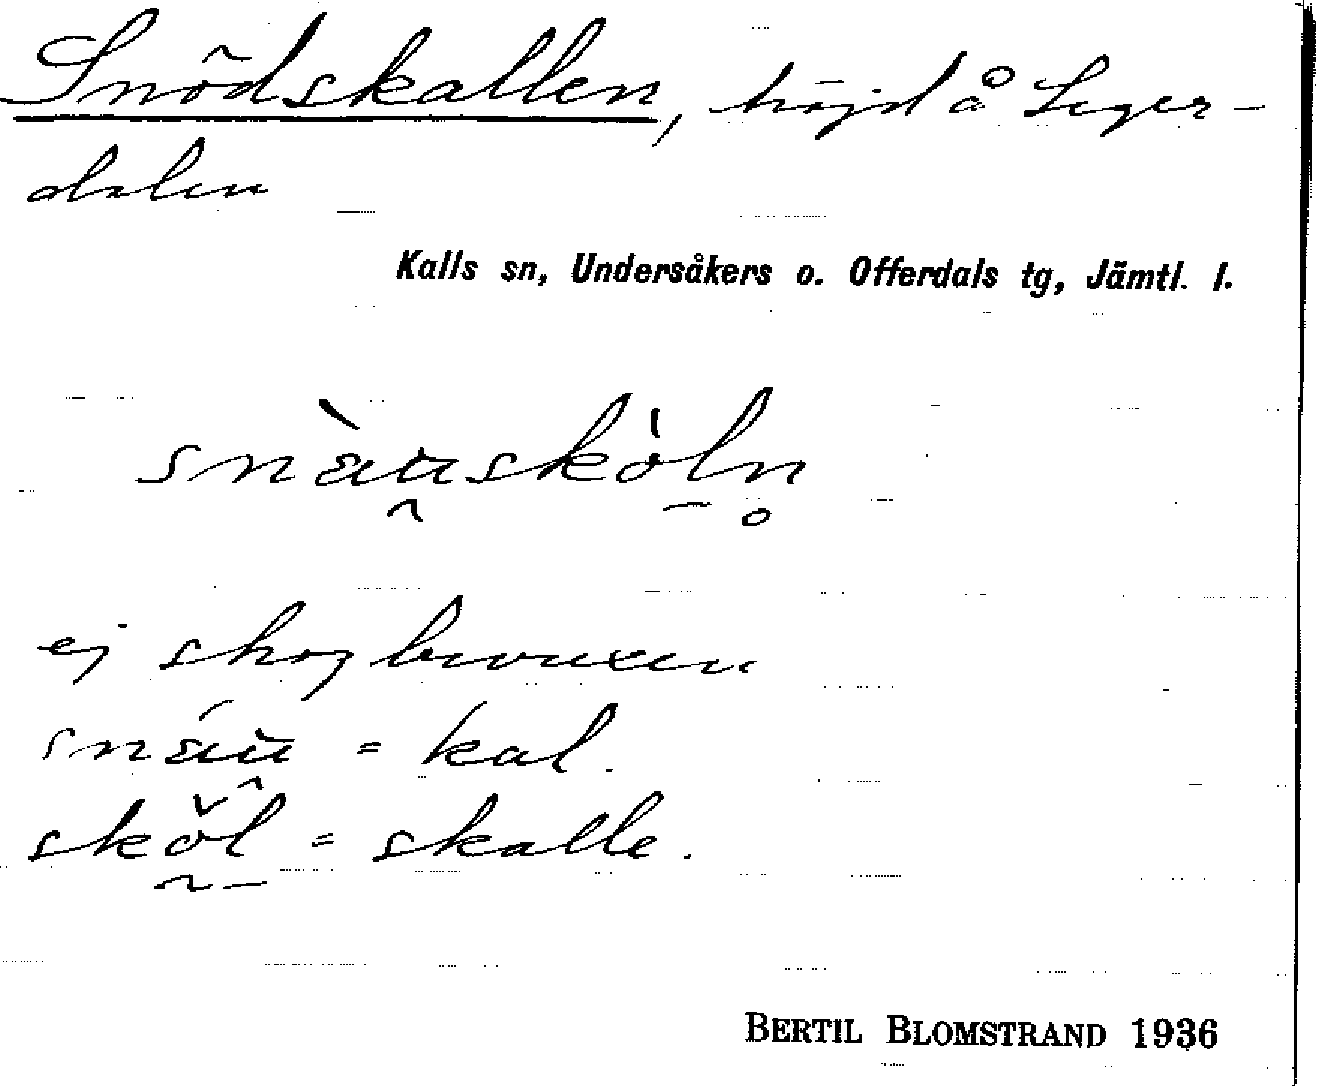 Snödskallen, höjd å Leger-
dalen
Kalls sn, Undersåkers o. Offerdals tg, Jämtl. l.
snàuskòln
ej skogbevuxen
snáu = kal.
sköl = skalle.
BERTIL BLOMSTRAND 1936